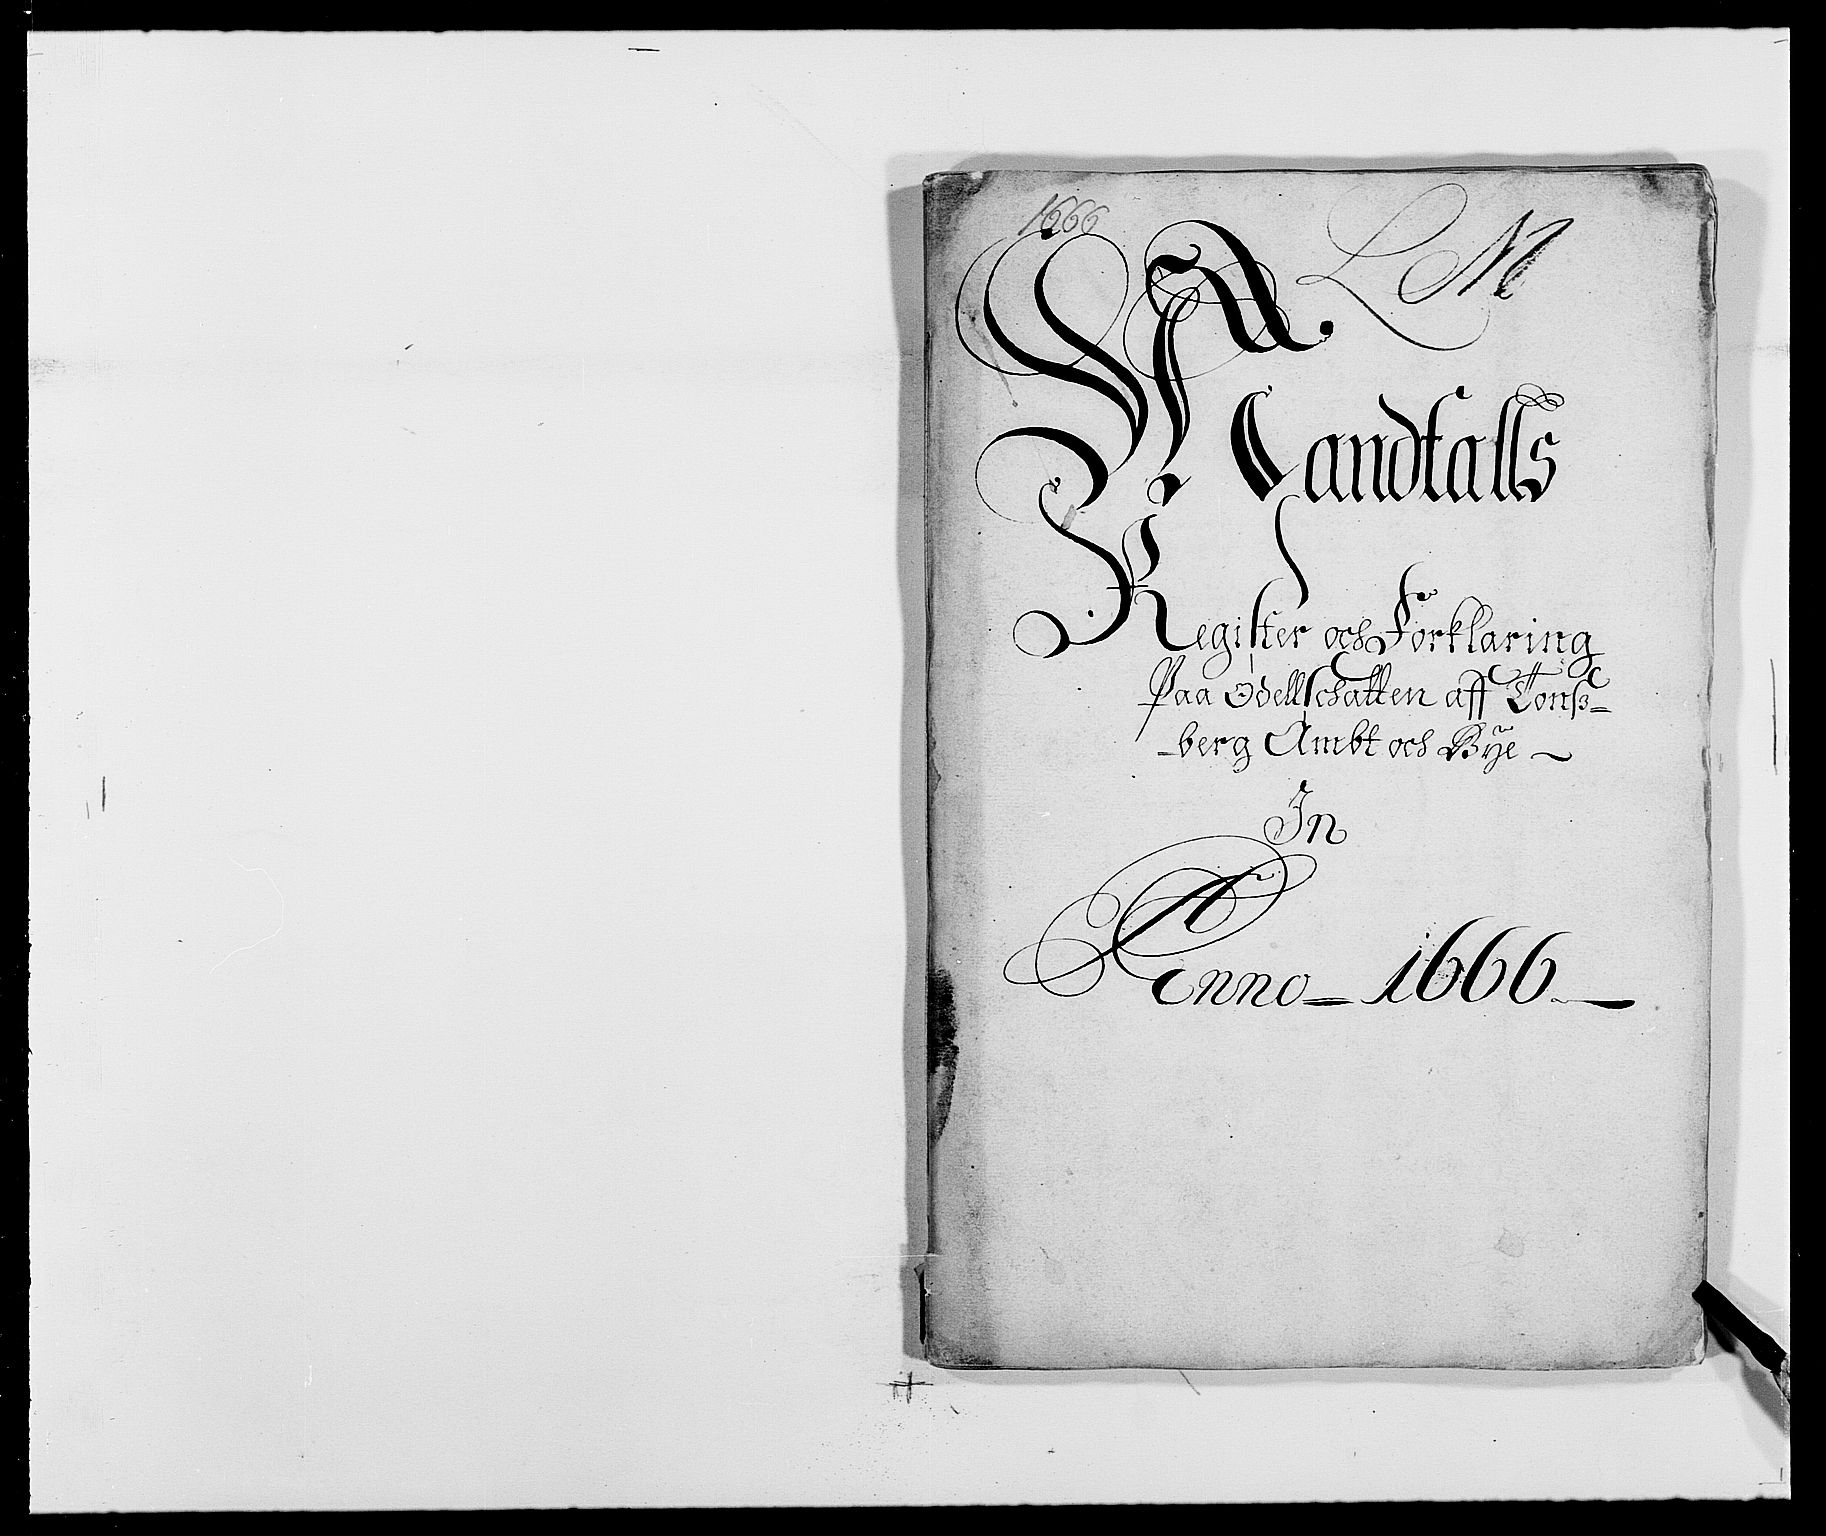 1666
L M
Mandtalls
Register och Forklaring
Paa Odellschatten aff Tonß-
-berg Ambt och Bÿe
In
Anno 1666